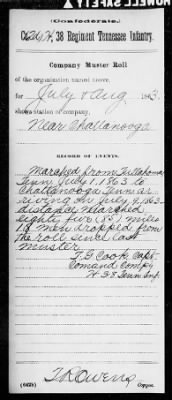 (Confederate.)
Co. H, 38 Regiment Tennessee Infantry.
Company Muster Roll
of the organization named above,
for July & Aug, 1863.
shows station of company,
Near Chattanooga
RECORD OF EVENTS.
Marched from Tullahoma
Tenn July 1, 1863 to
Chattanooga Tenn ar-
riving on July 7, 1863
distance marched
eighty five (85) miles
18 men dropped from
the roll since last
muster
T. G. Cook Capt.
Comand Compy
H. 38 Tenn Inf.
(662b)
Copyist.